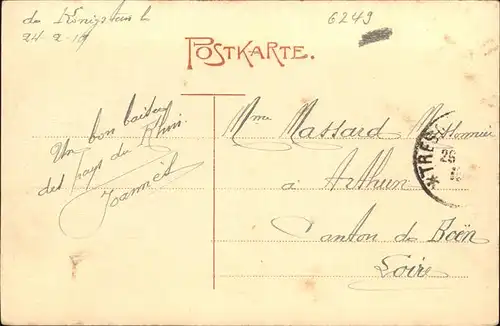 du Königstein le
24-2-19
6249
POSTKARTE.
Un bon baiser
des Pays du Rhin.
Joannès
Mme Massard
à Arthun
Canton de Boën
Loire
*TRÉS
26